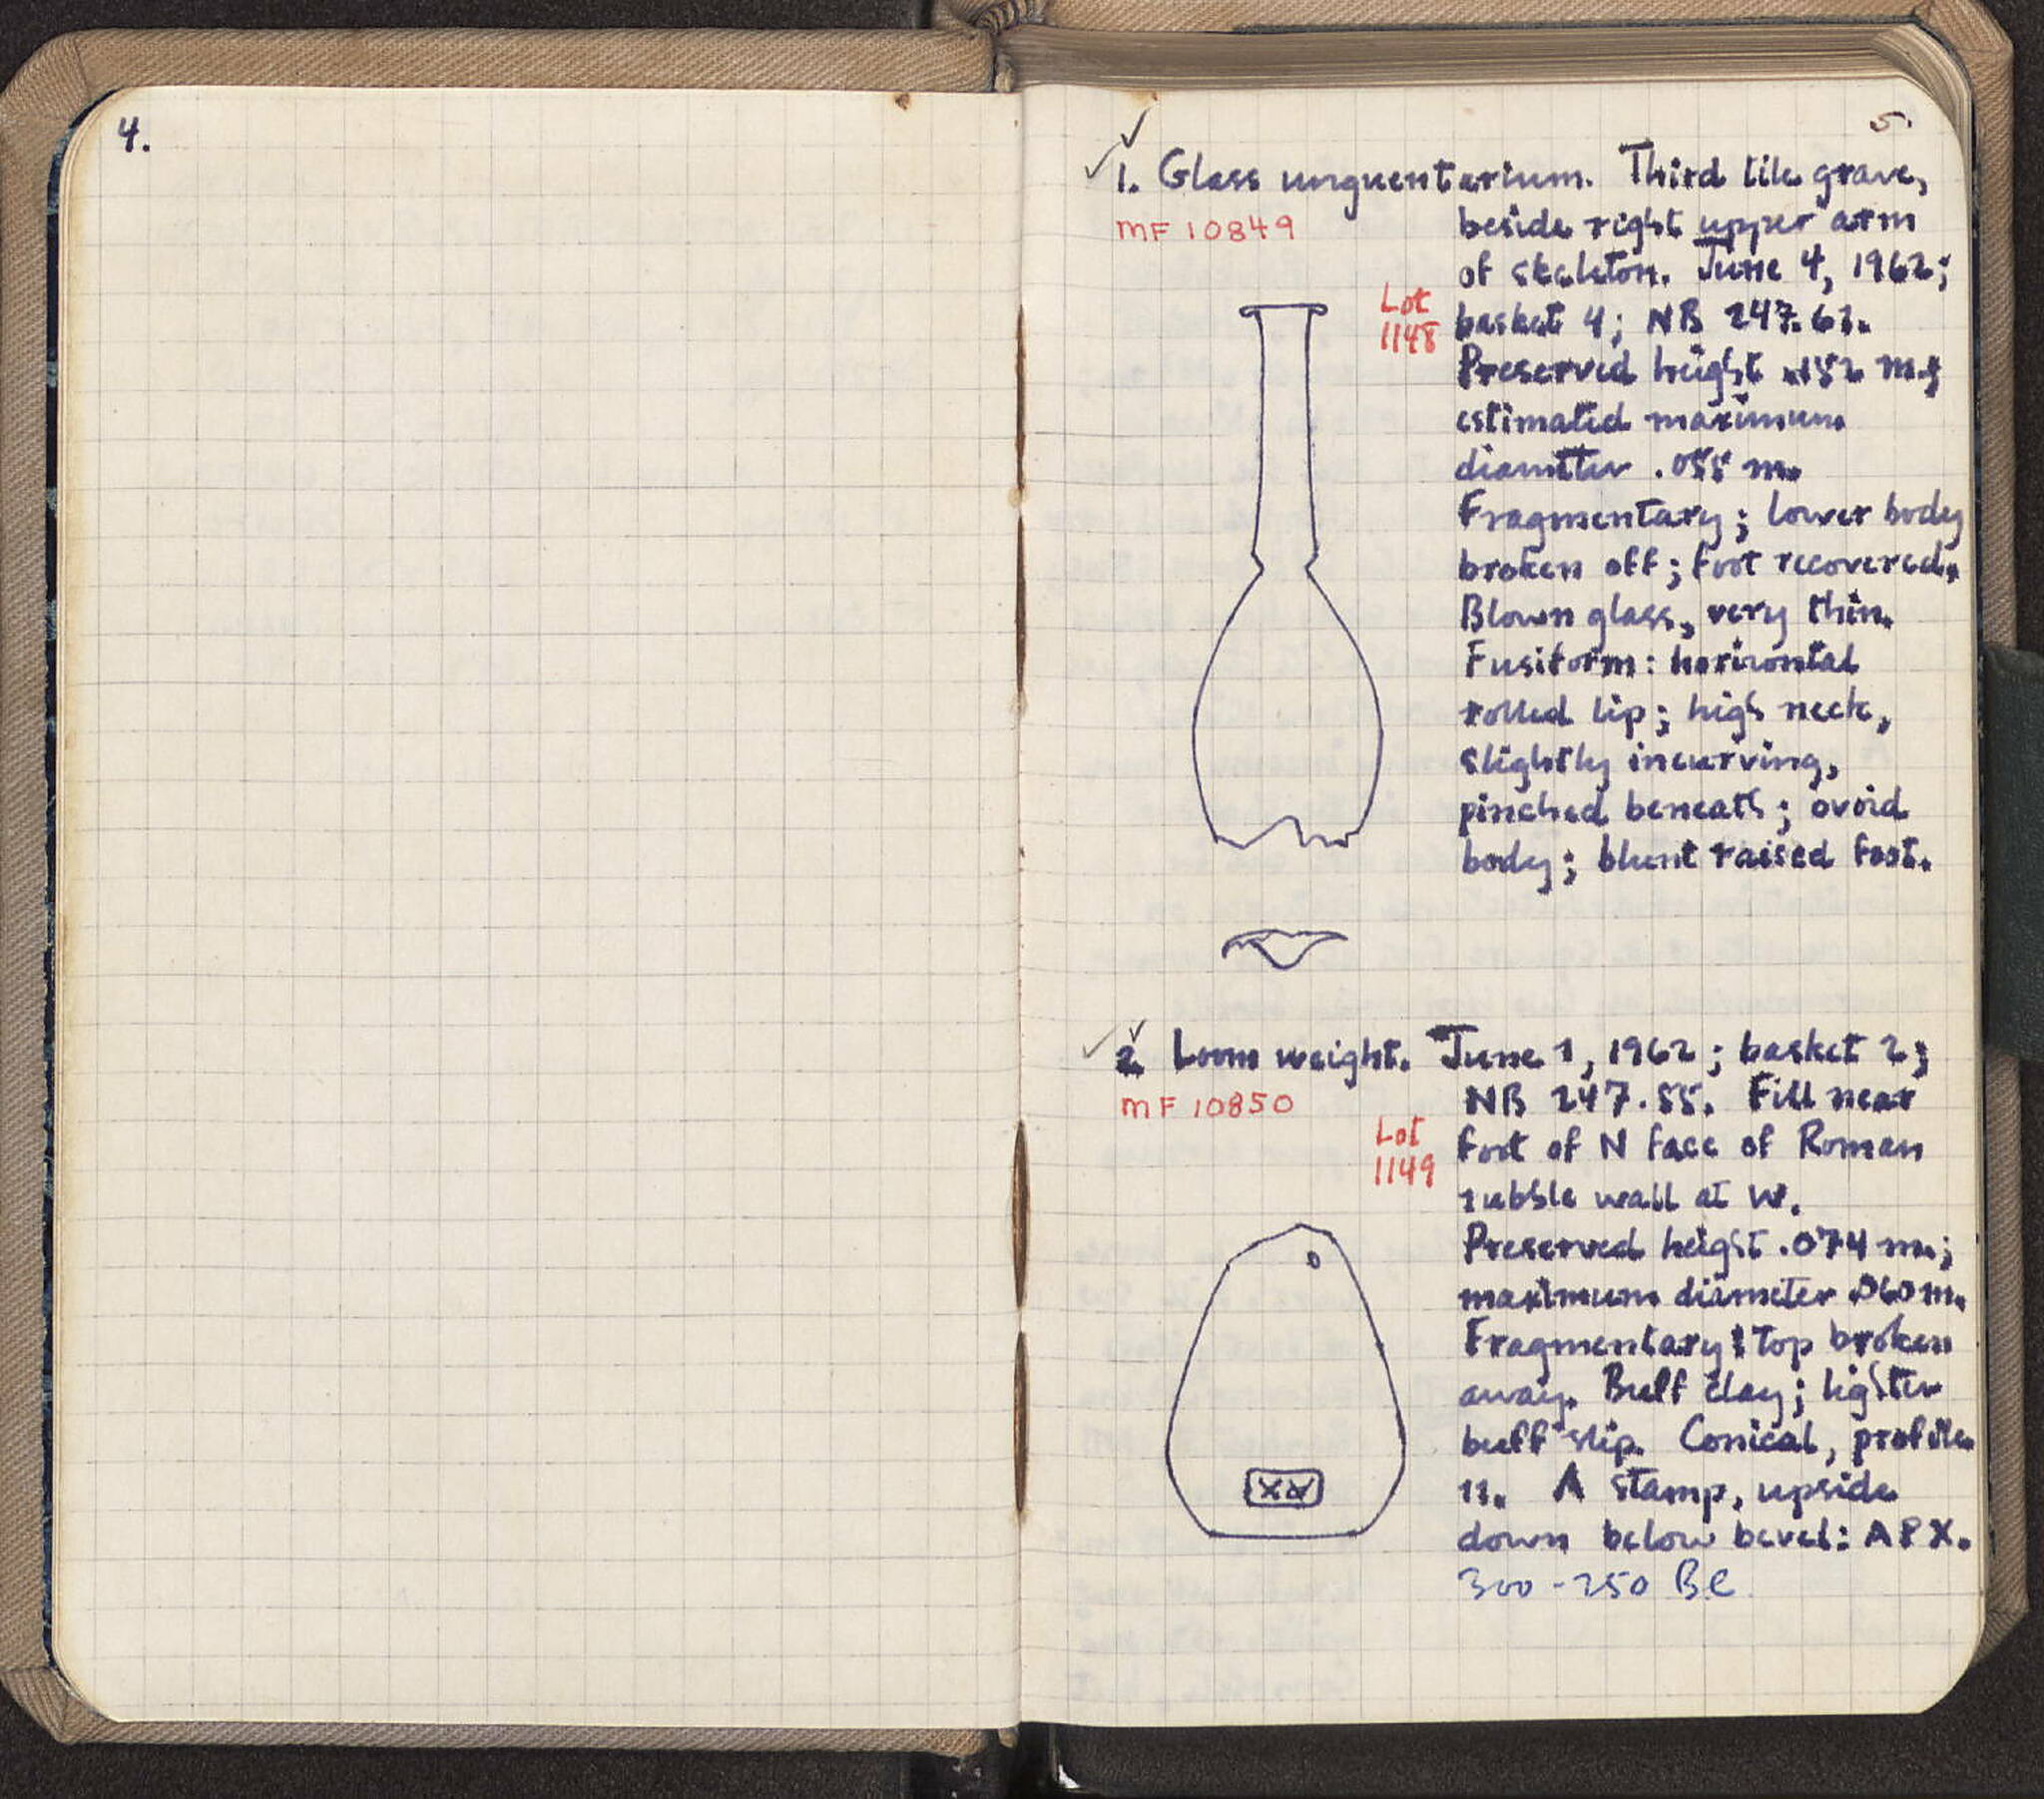 4.
5.
1. Glass unguentarium. Third tile grave,
MF 10849
beside right upper arm
of skeleton. June 4, 1962;
Lot
1148
basket 4; NB 247.61.
Preserved height .152 m.;
estimated maximum
diameter .055 m.
Fragmentary; lower body
broken off; foot recovered.
Blown glass, very thin.
Fusiform: horizontal
rolled lip; high neck,
slightly incurving,
pinched beneath; ovoid
body; blunt raised foot.
2 Loom weight. June 1, 1962; basket 2;
MF 10850
NB 247.55. Fill near
Lot
1149
foot of N face of Roman
rubble wall at W.
Preserved height .074 m.;
maximum diameter .060 m.
Fragmentary: top broken
away. Buff clay; lighter
buff slip. Conical, profile
11. A stamp, upside
down below bevel: APX.
300-250 BC